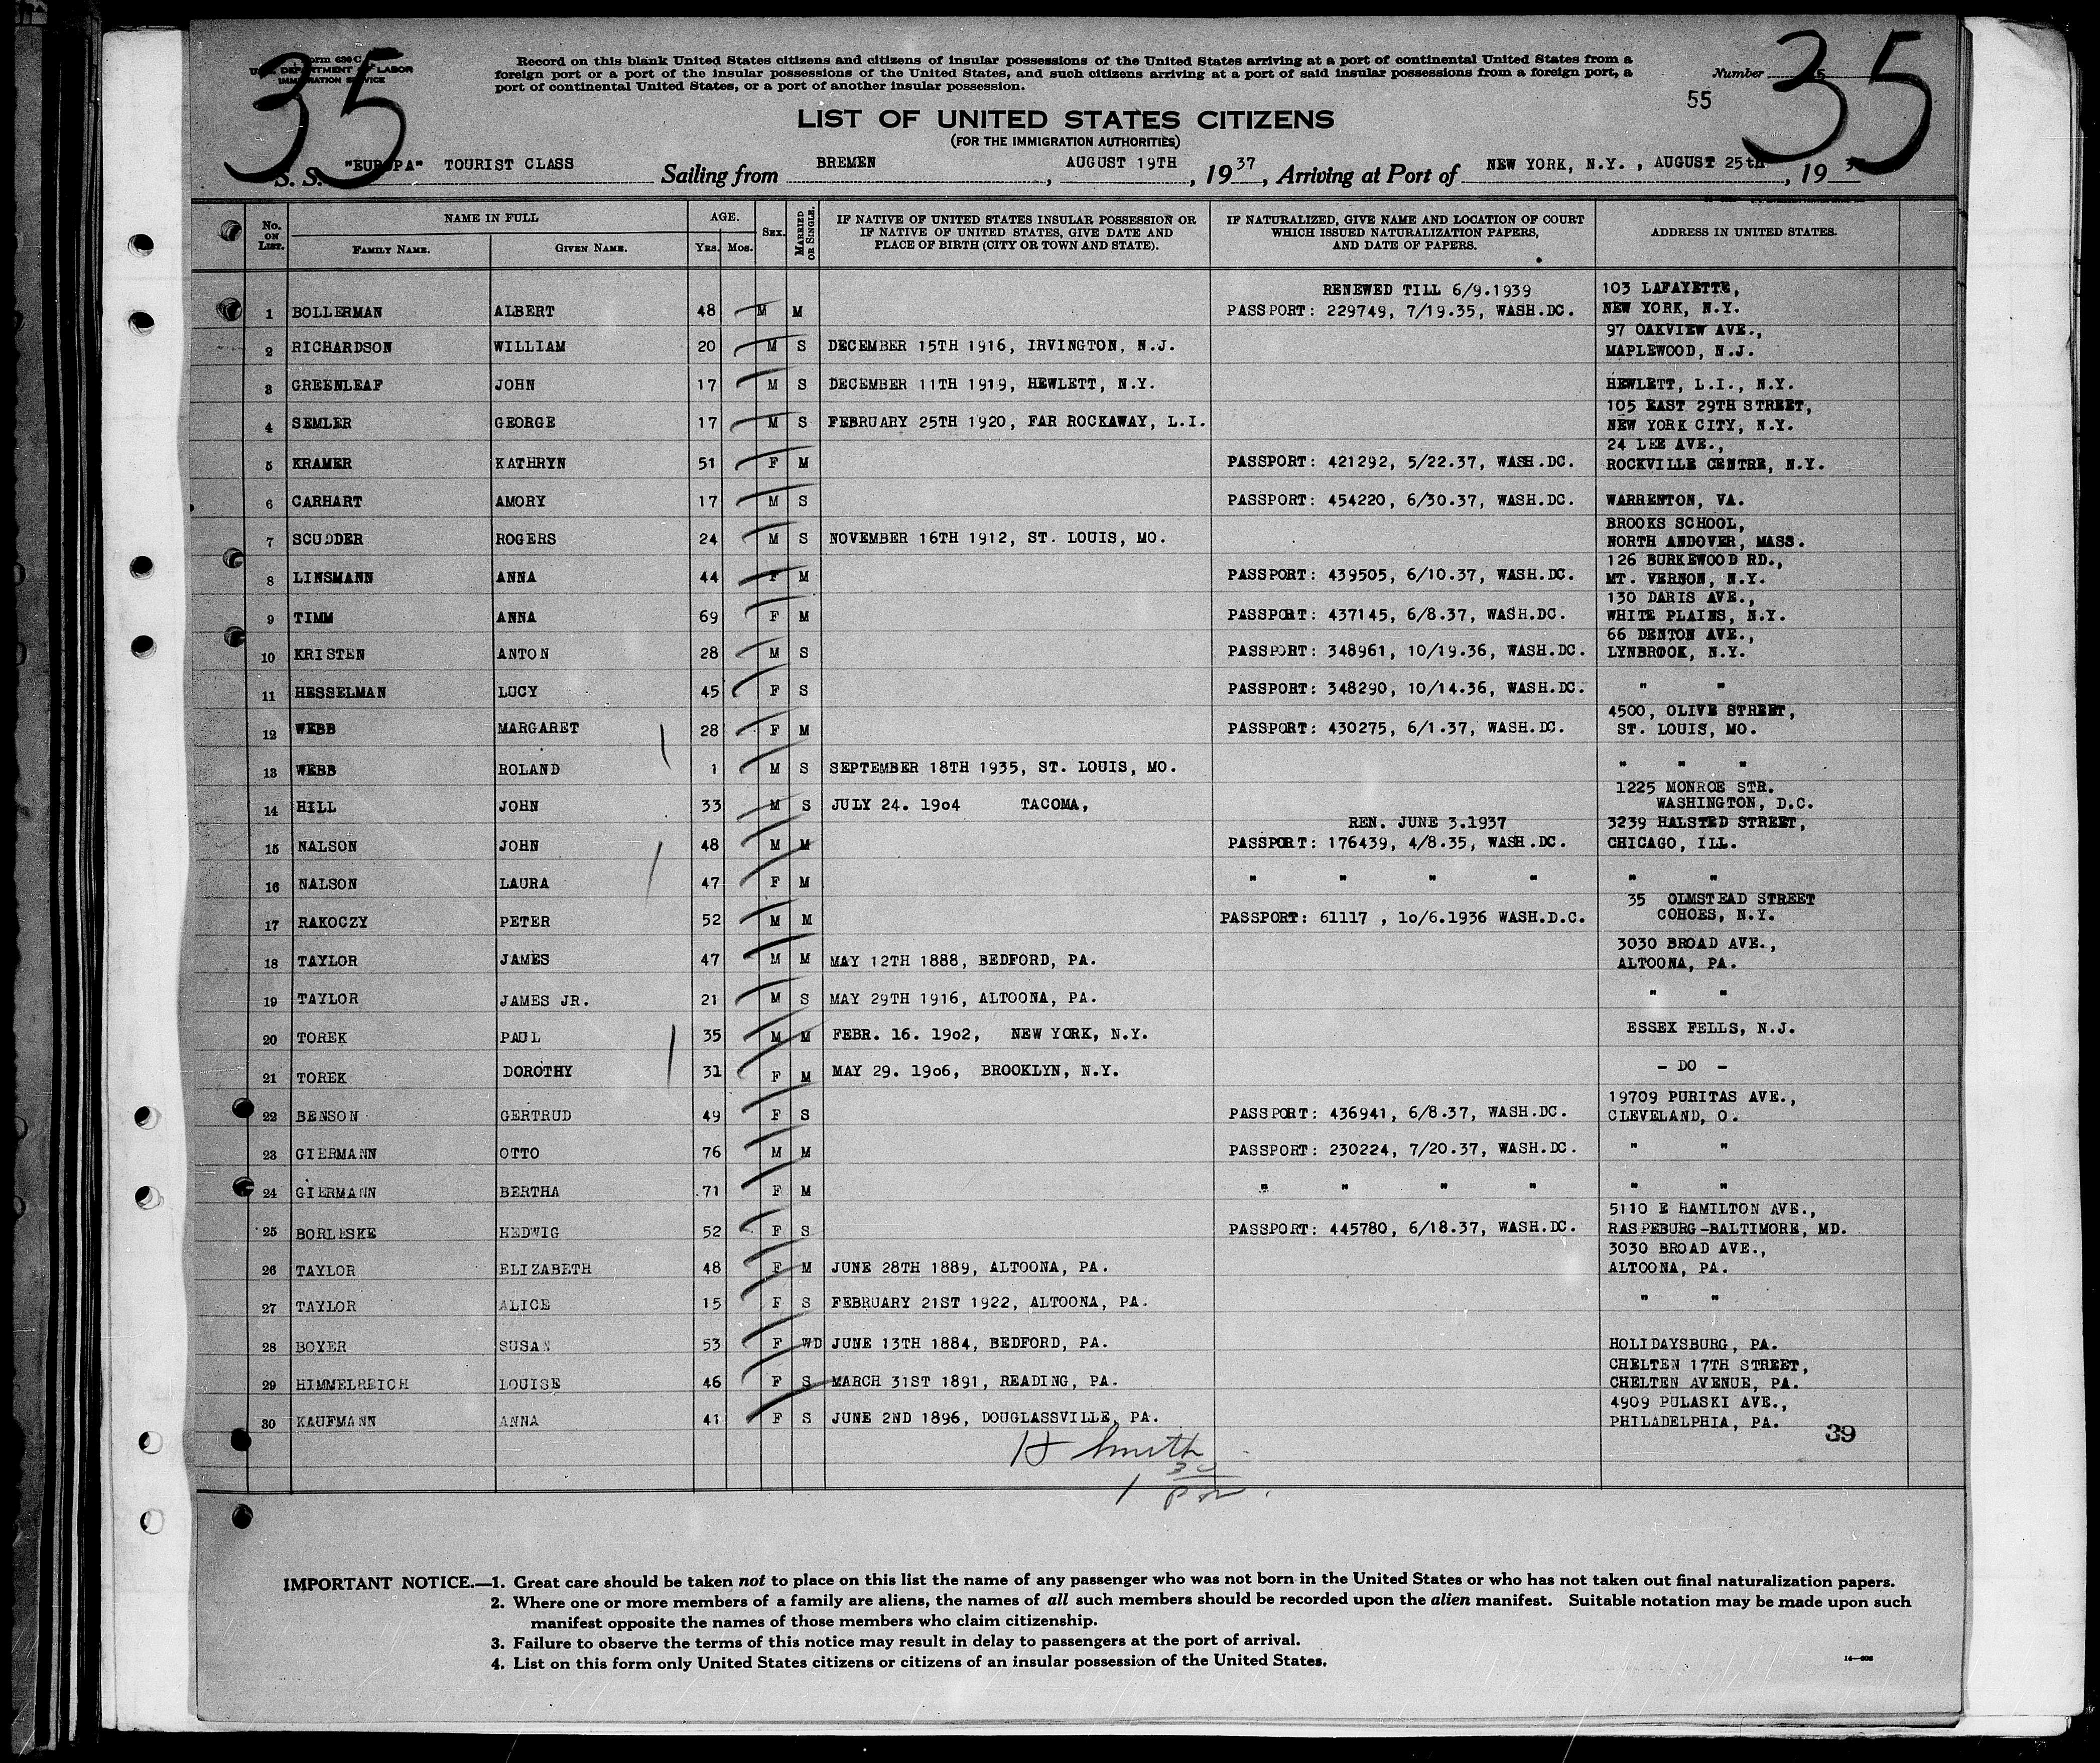 35
Form 630 C
U.S. DEPARTMENT OF LABOR
IMMIGRATION SERVICE
Record on this blank United States citizens and citizens of insular possessions of the United States arriving at a port of continental United States from a
foreign port or a port of the insular possessions of the United States, and such citizens arriving at a port of said insular possessions from a foreign port, a
port of continental United States, or a port of another insular possession.
Number
55
35
LIST OF UNITED STATES CITIZENS
(FOR THE IMMIGRATION AUTHORITIES)
S. S. "EUROPA" TOURIST CLASS Sailing from BREMEN, AUGUST 19TH, 1937, Arriving at Port of NEW YORK, N.Y., AUGUST 25th, 193
No. ON LIST. NAME IN FULL FAMILY NAME. GIVEN NAME. AGE. Yrs. Mos. SEX. MARRIED OR SINGLE. IF NATIVE OF UNITED STATES INSULAR POSSESSION OR IF NATIVE OF UNITED STATES, GIVE DATE AND PLACE OF BIRTH (CITY OR TOWN AND STATE). IF NATURALIZED, GIVE NAME AND LOCATION OF COURT WHICH ISSUED NATURALIZATION PAPERS, AND DATE OF PAPERS. ADDRESS IN UNITED STATES.
RENEWED TILL 6/9.1939 103 LAFAYETTE,
1 BOLLERMAN ALBERT 48 M M PASSPORT: 229749, 7/19.35, WASH.DC. NEW YORK, N.Y.
97 OAKVIEW AVE.,
2 RICHARDSON WILLIAM 20 M S DECEMBER 15TH 1916, IRVINGTON, N.J. MAPLEWOOD, N.J.
3 GREENLEAF JOHN 17 M S DECEMBER 11TH 1919, HEWLETT, N.Y. HEWLETT, L.I., N.Y.
105 EAST 29TH STREET,
4 SEMLER GEORGE 17 M S FEBRUARY 25TH 1920, FAR ROCKAWAY, L.I. NEW YORK CITY, N.Y.
24 LEE AVE.,
5 KRAMER KATHRYN 51 F M PASSPORT: 421292, 5/22.37, WASH.DC. ROCKVILLE CENTRE, N.Y.
6 CARHART AMORY 17 M S PASSPORT: 454220, 6/30.37, WASH.DC. WARRENTON, VA.
BROOKS SCHOOL,
7 SCUDDER ROGERS 24 M S NOVEMBER 16TH 1912, ST. LOUIS, MO. NORTH ANDOVER, MASS.
126 BURKEWOOD RD.,
8 LINSMANN ANNA 44 F M PASSPORT: 439505, 6/10.37, WASH.DC. MT. VERNON, N.Y.
130 DARIS AVE.,
9 TIMM ANNA 69 F M PASSPORT: 437145, 6/8.37, WASH.DC. WHITE PLAINS, N.Y.
66 DENTON AVE.,
10 KRISTEN ANTON 28 M S PASSPORT: 348961, 10/19.36, WASH.DC. LYNBROOK, N.Y.
11 HESSELMAN LUCY 45 F S PASSPORT: 348290, 10/14.36, WASH.DC. " "
4500, OLIVE STREET,
12 WEBB MARGARET 28 F M PASSPORT: 430275, 6/1.37, WASH.DC. ST. LOUIS, MO.
13 WEBB ROLAND 1 M S SEPTEMBER 18TH 1935, ST. LOUIS, MO. " " "
1225 MONROE STR.
14 HILL JOHN 33 M S JULY 24. 19o4 TACOMA, WASHINGTON, D.C.
REN. JUNE 3.1937 3239 HALSTED STREET,
15 NALSON JOHN 48 M M PASSPORT: 176439, 4/8.35, WASH.DC. CHICAGO, ILL.
16 NALSON LAURA 47 F M " " " " " "
35 OLMSTEAD STREET
17 RAKOCZY PETER 52 M M PASSPORT: 61117 , 1o/6.1936 WASH.D.C. COHOES, N.Y.
3030 BROAD AVE.,
18 TAYLOR JAMES 47 M M MAY 12TH 1888, BEDFORD, PA. ALTOONA, PA.
19 TAYLOR JAMES JR. 21 M S MAY 29TH 1916, ALTOONA, PA. " "
20 TOREK PAUL 35 M M FEBR. 16. 19o2, NEW YORK, N.Y. ESSEX FELLS, N.J.
21 TOREK DOROTHY 31 F M MAY 29. 19o6, BROOKLYN, N.Y. - DO -
19709 PURITAS AVE.,
22 BENSON GERTRUD 49 F S PASSPORT: 436941, 6/8.37, WASH.DC. CLEVELAND, O.
23 GIERMANN OTTO 76 M M PASSPORT: 230224, 7/20.37, WASH.DC. " "
24 GIERMANN BERTHA 71 F M " " " " " "
5110 E HAMILTON AVE.,
25 BORLESKE HEDWIG 52 F S PASSPORT: 445780, 6/18.37, WASH.DC. RASPEBURG-BALTIMORE, MD.
3030 BROAD AVE.,
26 TAYLOR ELIZABETH 48 F M JUNE 28TH 1889, ALTOONA, PA. ALTOONA, PA.
27 TAYLOR ALICE 15 F S FEBRUARY 21ST 1922, ALTOONA, PA. " "
28 BOYER SUSAN 53 F WD JUNE 13TH 1884, BEDFORD, PA. HOLIDAYSBURG, PA.
CHELTEN 17TH STREET,
29 HIMMELREICH LOUISE 46 F S MARCH 31ST 1891, READING, PA. CHELTEN AVENUE, PA.
4909 PULASKI AVE.,
30 KAUFMANN ANNA 41 F S JUNE 2ND 1896, DOUGLASSVILLE, PA. PHILADELPHIA, PA.
39
H Smith
1 30 pm.
IMPORTANT NOTICE.—1. Great care should be taken not to place on this list the name of any passenger who was not born in the United States or who has not taken out final naturalization papers.
2. Where one or more members of a family are aliens, the names of all such members should be recorded upon the alien manifest. Suitable notation may be made upon such
manifest opposite the names of those members who claim citizenship.
3. Failure to observe the terms of this notice may result in delay to passengers at the port of arrival.
4. List on this form only United States citizens or citizens of an insular possession of the United States.